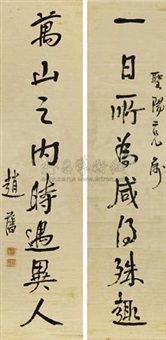 聖陽仁兄屬
一日所為咸得殊趣
萬山之內時遇異人
趙